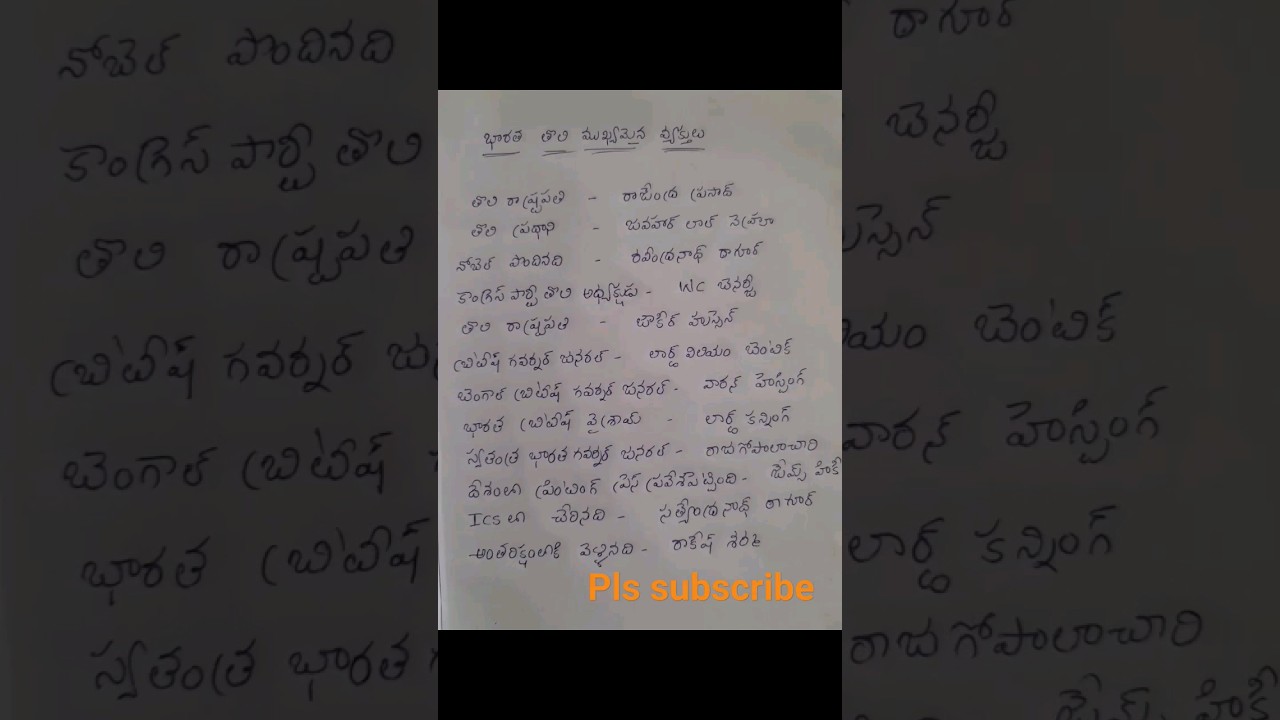 భారత తొలి ముఖ్యమైన వ్యక్తులు
తొలి రాష్ట్రపతి - రాజేంద్ర ప్రసాద్
తొలి ప్రధాని - జవహర్ లాల్ నెహ్రూ
నోబెల్ పొందినది - రవీంద్రనాథ్ ఠాగూర్
కాంగ్రెస్ పార్టీ తొలి అధ్యక్షుడు - WC బెనర్జీ
తొలి రాష్ట్రపతి - జాకీర్ హుస్సెన్
బ్రిటీష్ గవర్నర్ జనరల్ - లార్డ్ విలియం బెంటిక్
బెంగాల్ బ్రిటీష్ గవర్నర్ జనరల్ - వారన్ హెస్టింగ్
భారత బ్రిటీష్ వైశ్రాయ్ - లార్డ్ కన్నింగ్
స్వతంత్ర భారత గవర్నర్ జనరల్ - రాజగోపాలాచారి
దేశంలో ప్రింటింగ్ ప్రెస్ ప్రవేశపెట్టింది - జేమ్స్ హికీ
ICS లో చేరినది - సత్యేంద్రనాథ్ ఠాగూర్
అంతరిక్షంలోకి వెళ్ళినది - రాకేష్ శర్మ
Pls subscribe